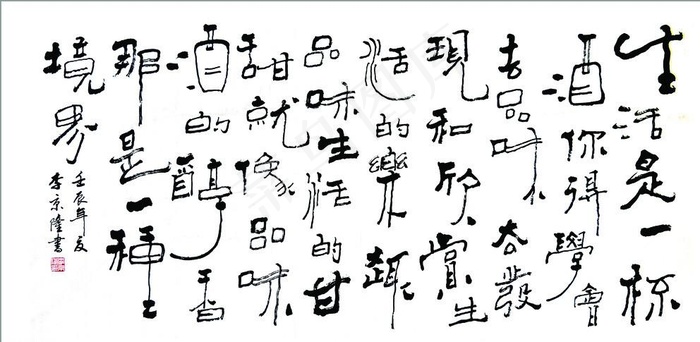 生活是一杯
酒你得學會
去品味 去發
現和欣賞生
活的樂趣
品味生活的甘
甜就像品味
酒的醇香
那是一種
境界
壬辰年夏
李京隆書